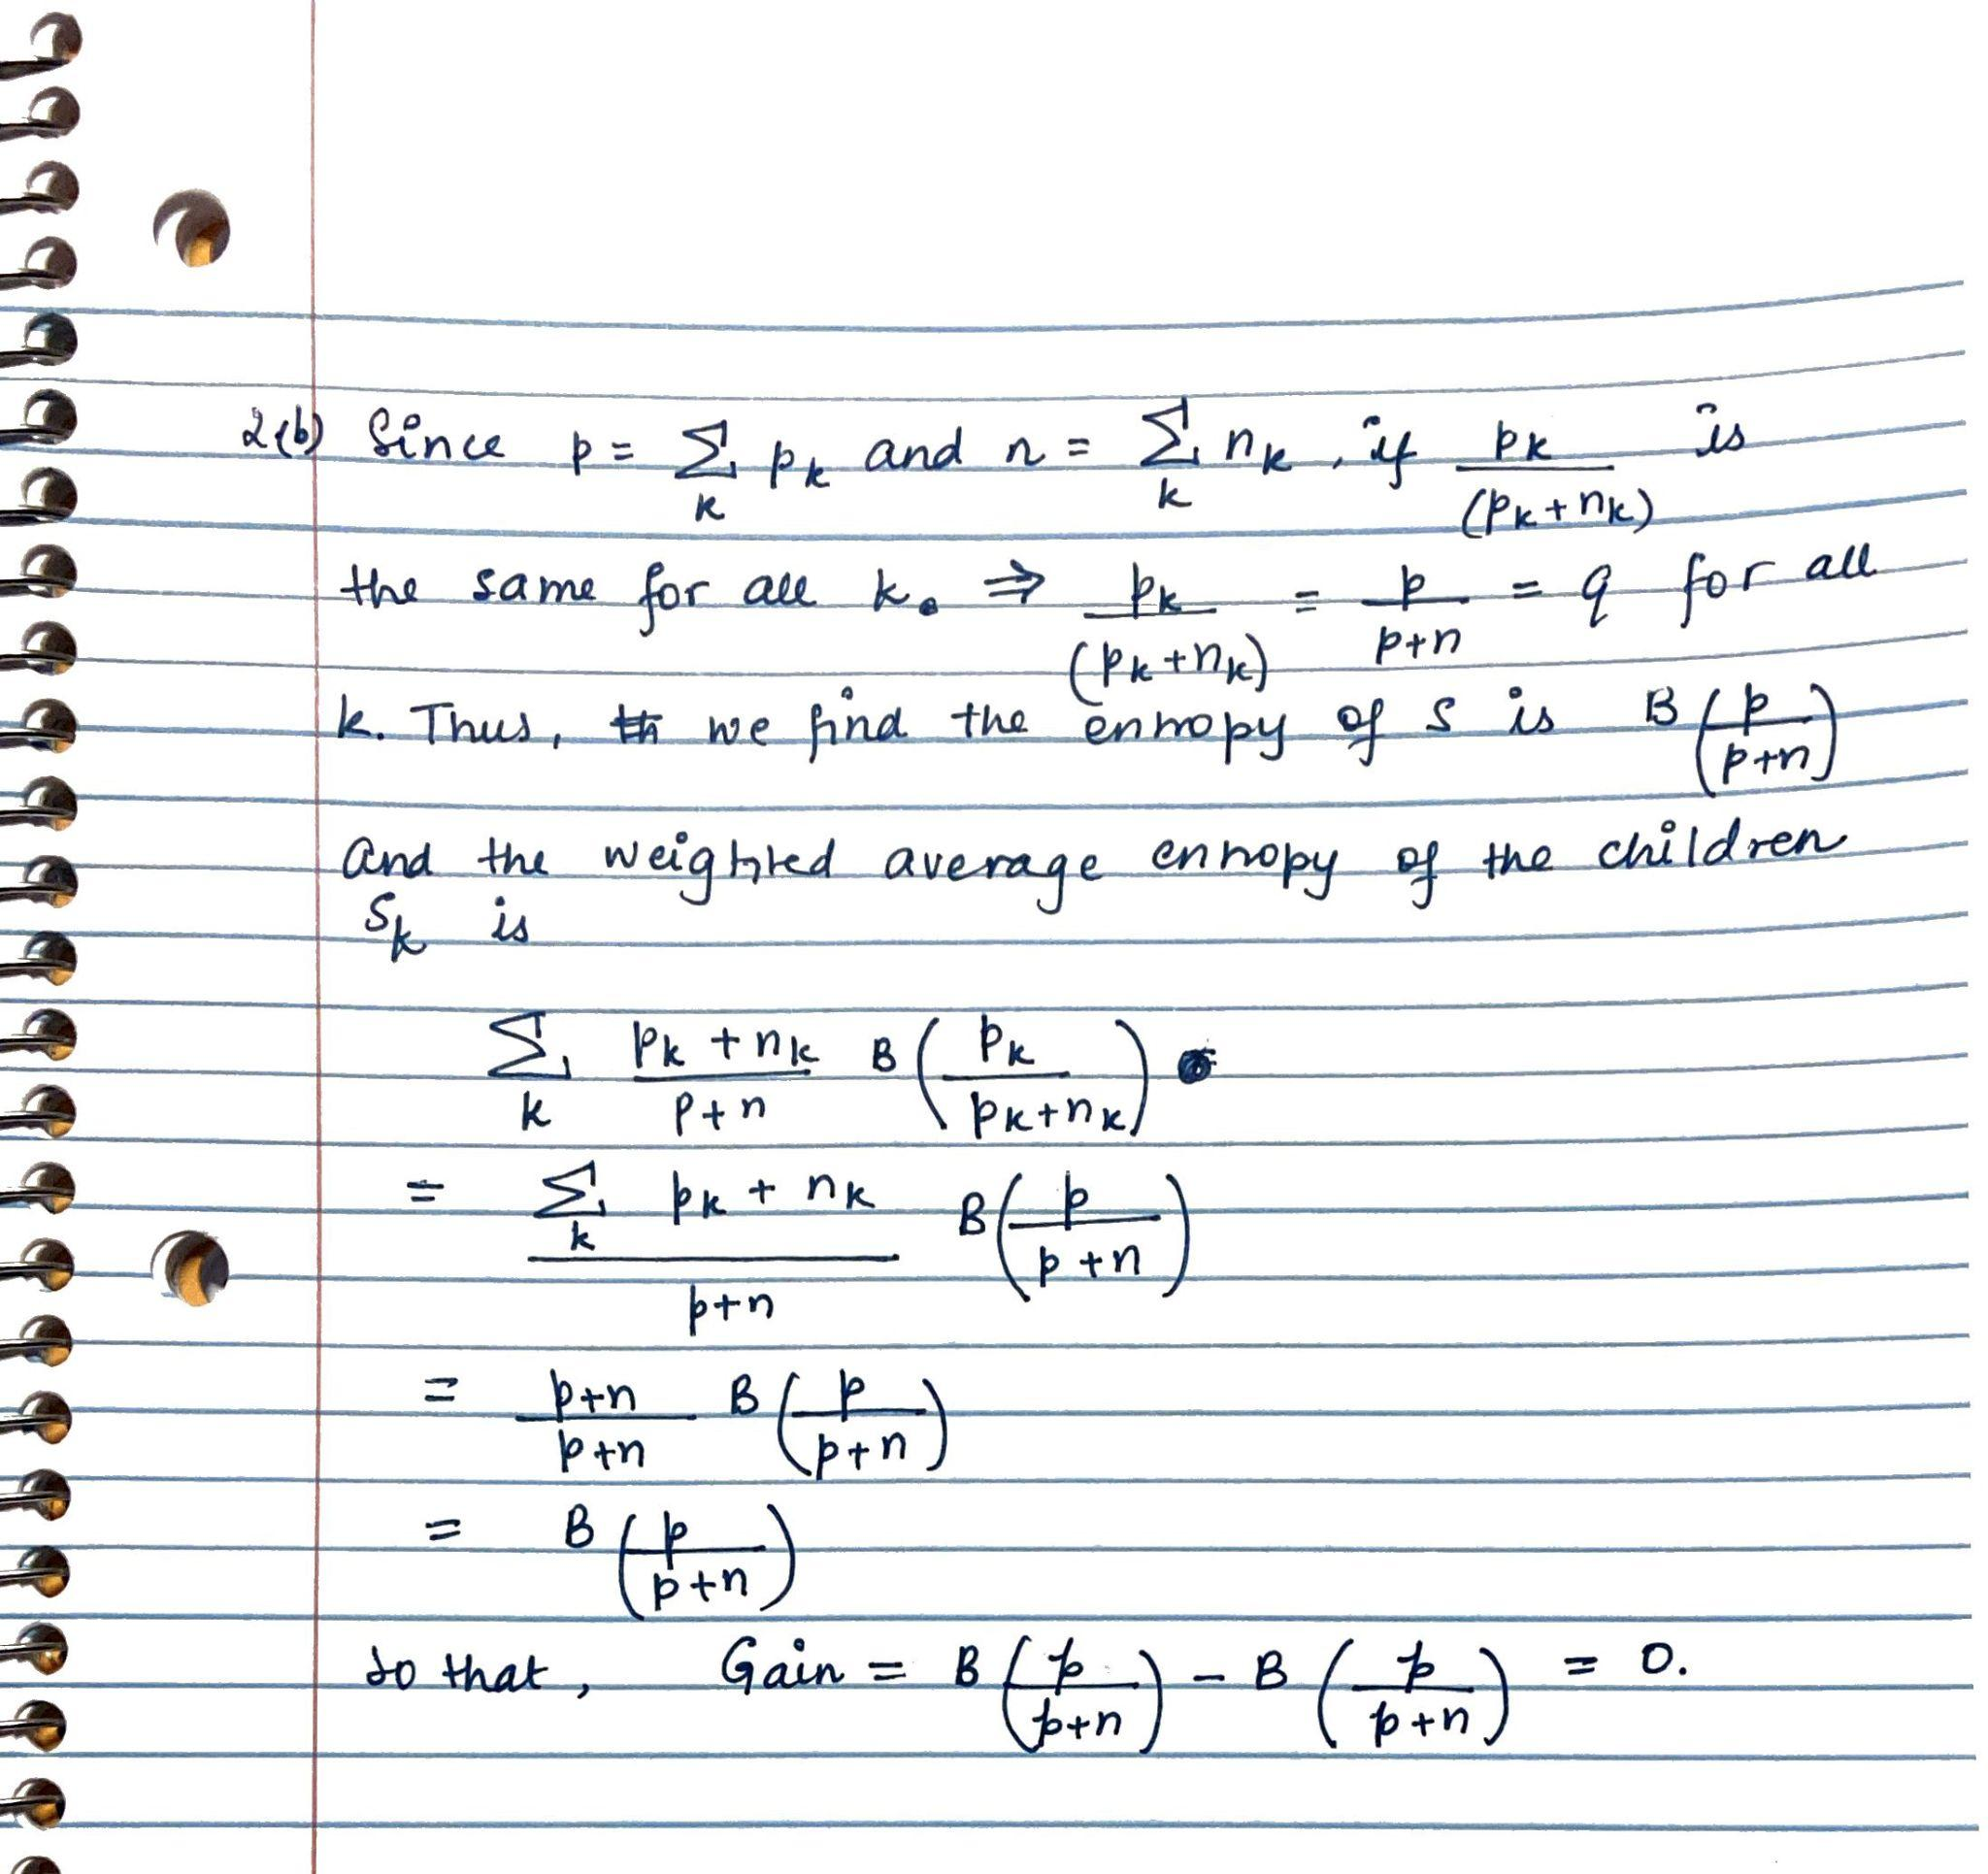 2(b) Since p = ∑_k p_k and n = ∑_k n_k, if p_k/(p_k+n_k) is
the same for all k. ⇒ p_k/(p_k+n_k) = p/(p+n) = q for all
k. Thus, we find the entropy of S is B(p/(p+n))
and the weighted average entropy of the children
S_k is
∑_k (p_k+n_k)/(p+n) B(p_k/(p_k+n_k))
= (∑_k p_k + n_k)/(p+n) B(p/(p+n))
= (p+n)/(p+n) B(p/(p+n))
= B(p/(p+n))
so that, Gain = B(p/(p+n)) - B(p/(p+n)) = 0.